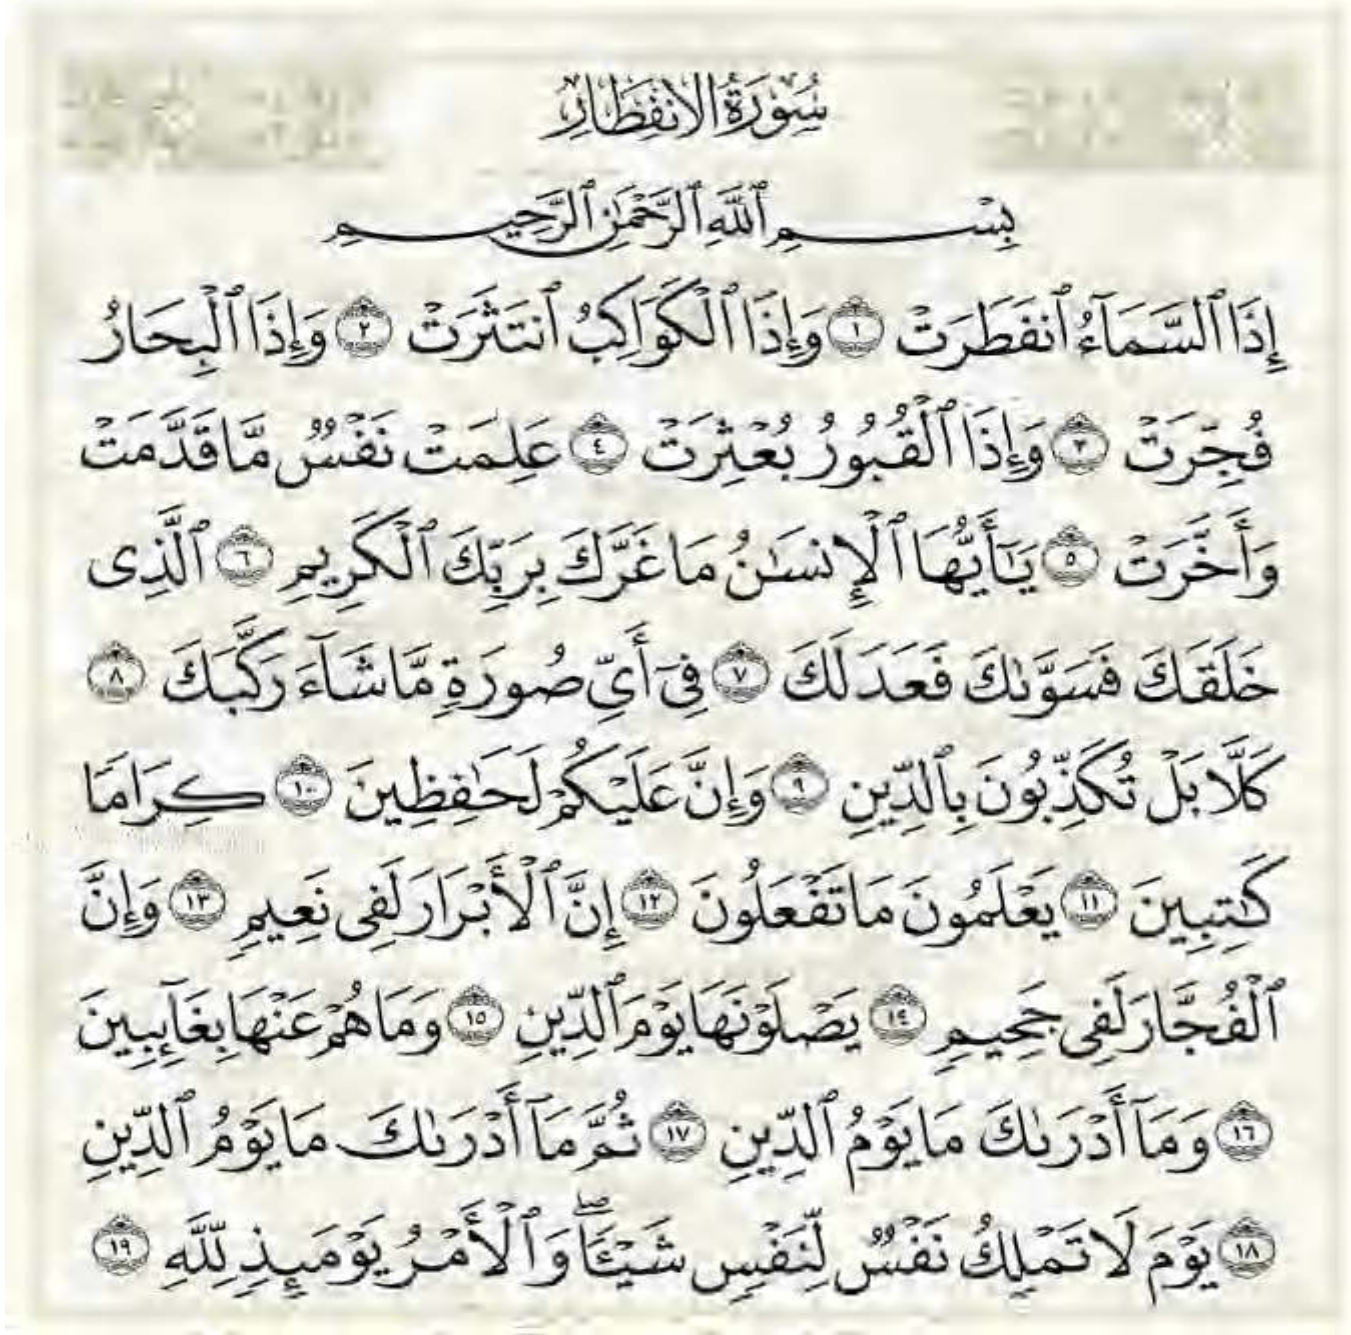 سُورَةُ الانفِطَارِ
بِسْمِ ٱللَّهِ ٱلرَّحْمَٰنِ ٱلرَّحِيمِ
إِذَا ٱلسَّمَآءُ ٱنفَطَرَتْ ١ وَإِذَا ٱلْكَوَاكِبُ ٱنتَثَرَتْ ٢ وَإِذَا ٱلْبِحَارُ
فُجِّرَتْ ٣ وَإِذَا ٱلْقُبُورُ بُعْثِرَتْ ٤ عَلِمَتْ نَفْسٌ مَّا قَدَّمَتْ
وَأَخَّرَتْ ٥ يَٰٓأَيُّهَا ٱلْإِنسَٰنُ مَا غَرَّكَ بِرَبِّكَ ٱلْكَرِيمِ ٦ ٱلَّذِى
خَلَقَكَ فَسَوَّىٰكَ فَعَدَلَكَ ٧ فِىٓ أَىِّ صُورَةٍ مَّا شَآءَ رَكَّبَكَ ٨
كَلَّا بَلْ تُكَذِّبُونَ بِٱلدِّينِ ٩ وَإِنَّ عَلَيْكُمْ لَحَٰفِظِينَ ١٠ كِرَامًا
كَٰتِبِينَ ١١ يَعْلَمُونَ مَا تَفْعَلُونَ ١٢ إِنَّ ٱلْأَبْرَارَ لَفِى نَعِيمٍ ١٣ وَإِنَّ
ٱلْفُجَّارَ لَفِى جَحِيمٍ ١٤ يَصْلَوْنَهَا يَوْمَ ٱلدِّينِ ١٥ وَمَا هُمْ عَنْهَا بِغَآئِبِينَ
١٦ وَمَآ أَدْرَىٰكَ مَا يَوْمُ ٱلدِّينِ ١٧ ثُمَّ مَآ أَدْرَىٰكَ مَا يَوْمُ ٱلدِّينِ
١٨ يَوْمَ لَا تَمْلِكُ نَفْسٌ لِّنَفْسٍ شَيْـًٔا ۖ وَٱلْأَمْرُ يَوْمَئِذٍ لِّلَّهِ ١٩